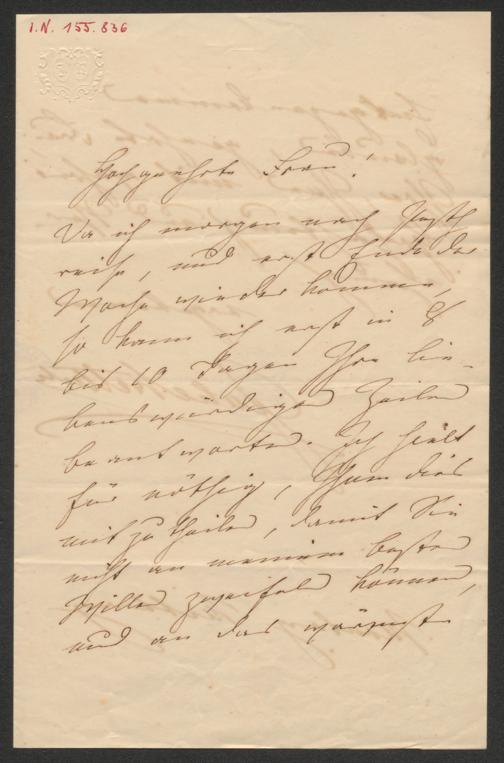 I.N. 155.836
Hochgeehrte Frau!
Da ich morgen nach Pesth
reise, und erst Ende der
Woche wieder komme,
so kann ich erst in 8
bis 10 Tagen Ihre lie-
benswürdigen Zeilen
beantworten. Ich hielt
für nöthig, Ihnen dies
mitzutheilen, damit Sie
nicht an meinem besten
Willen zweifeln können,
und an das wärmste